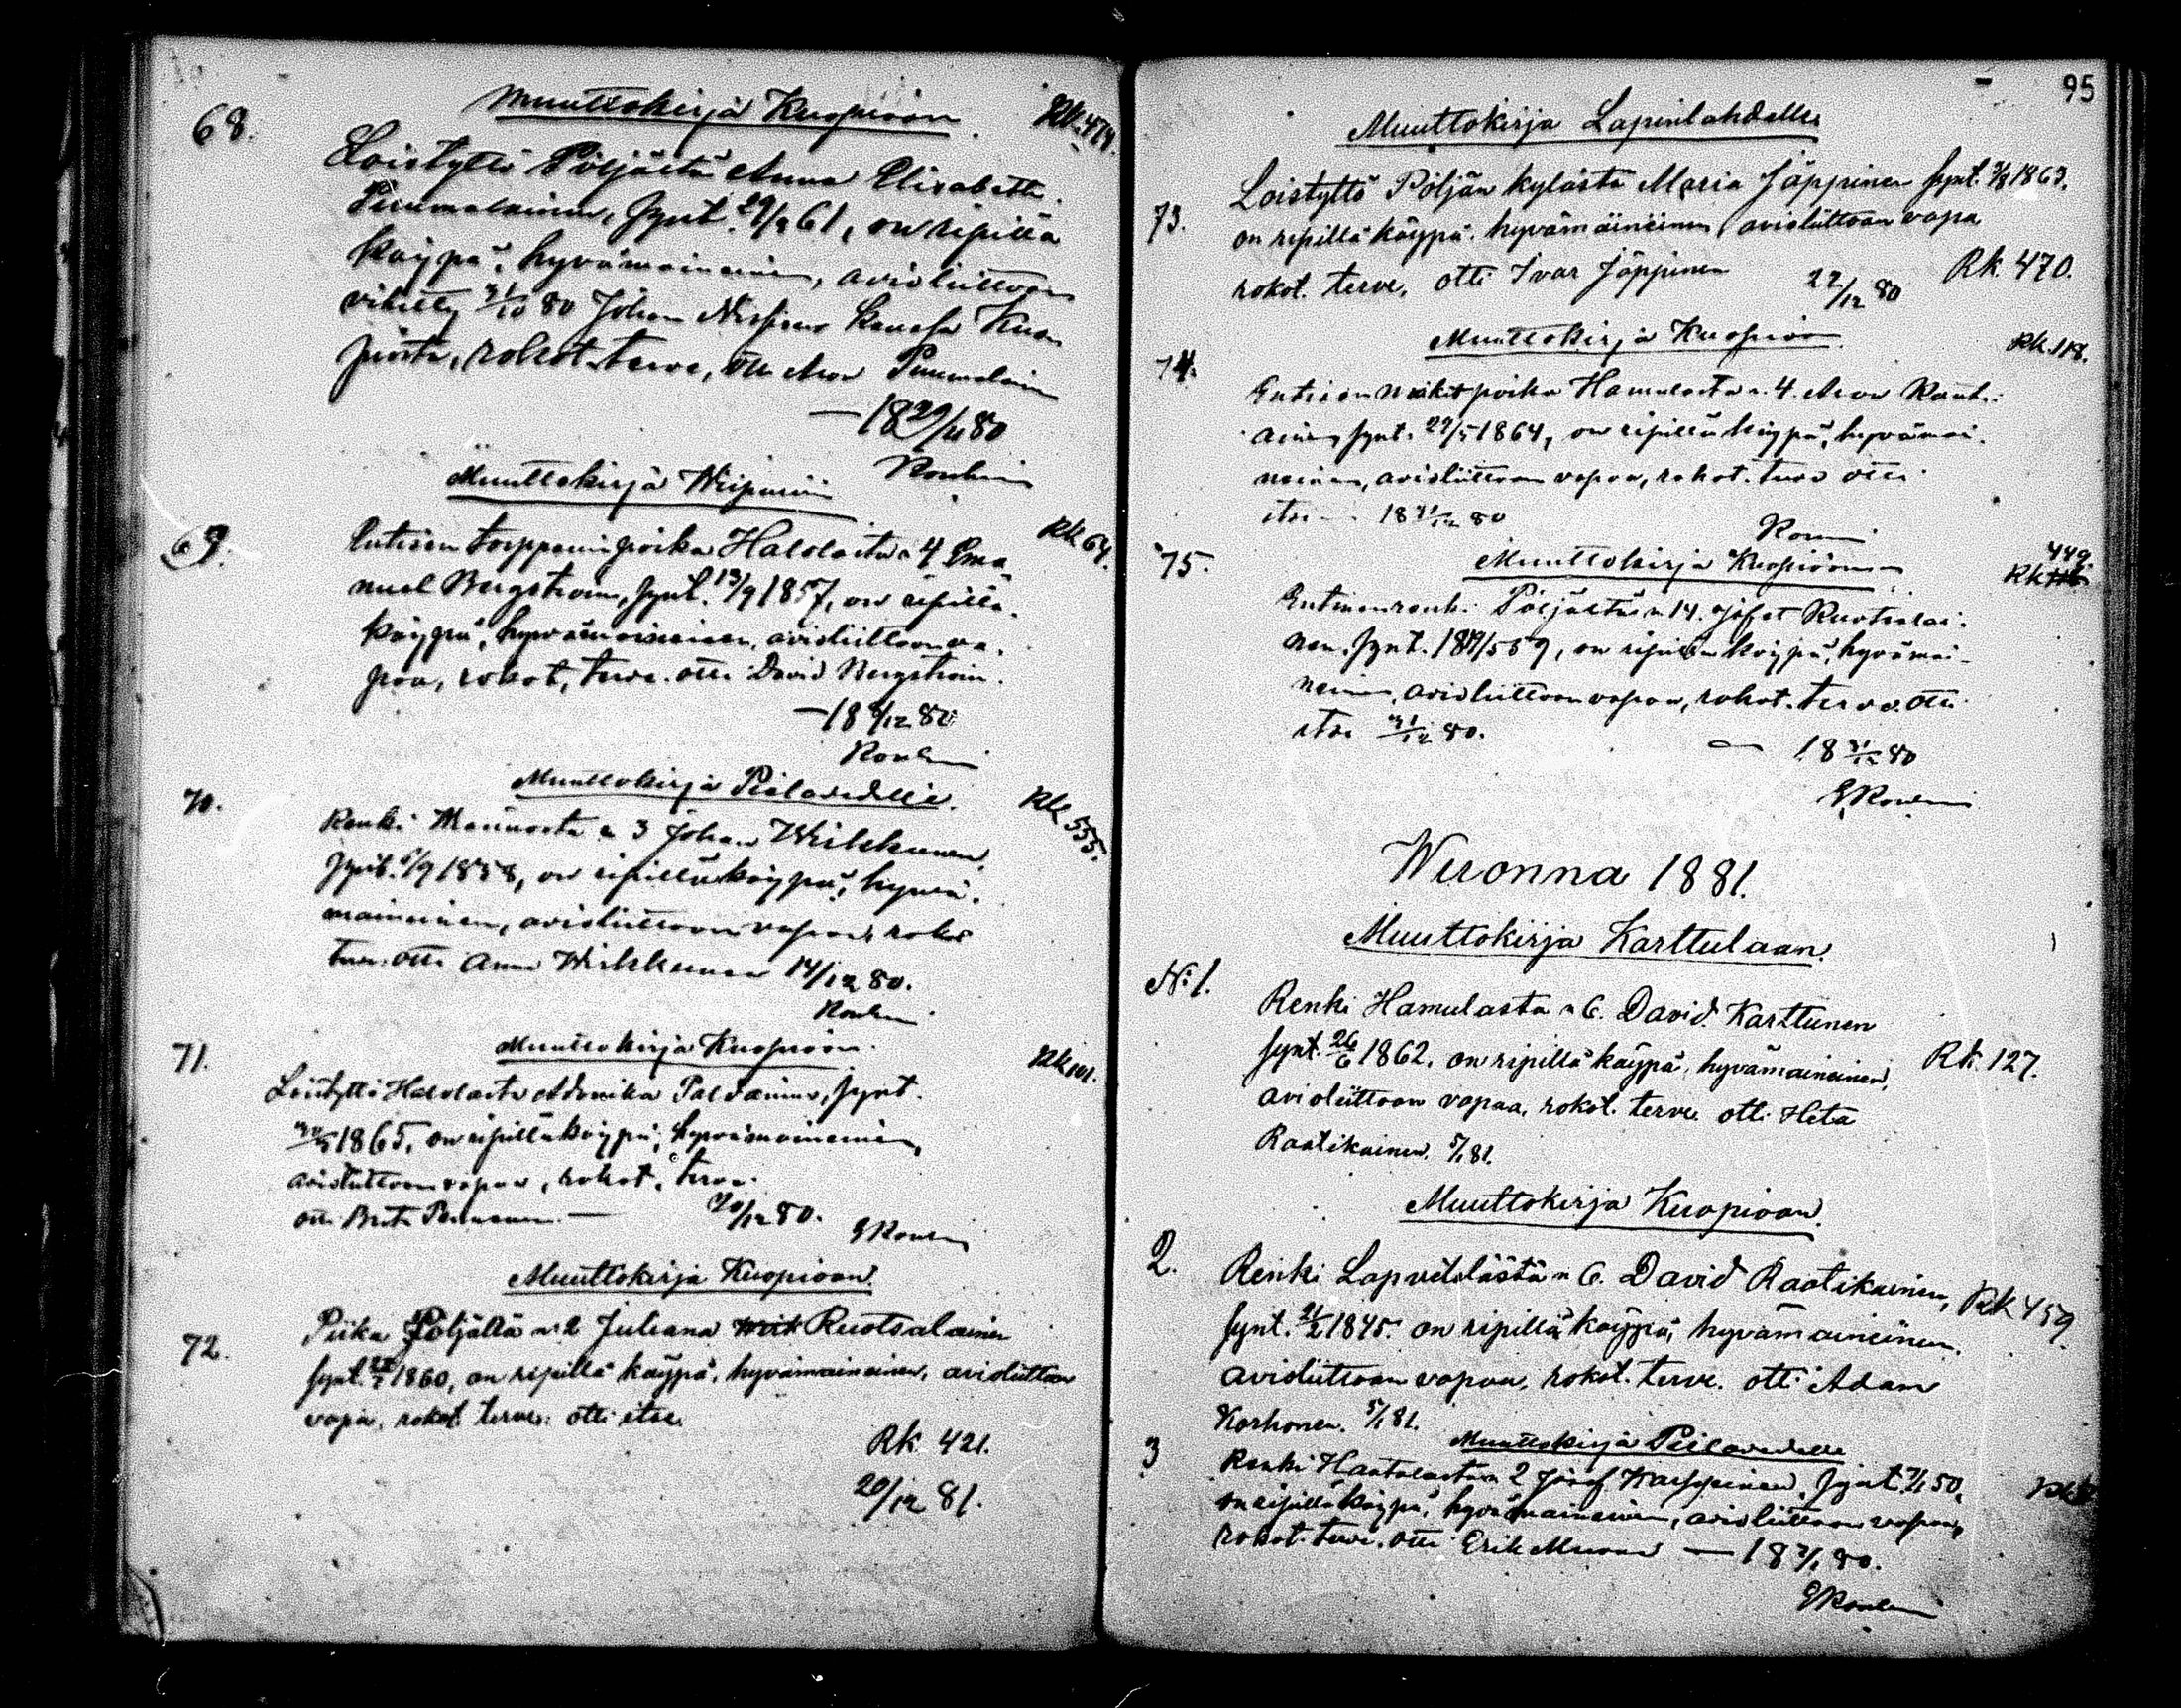 Muuttokirja Kuopioon
68. Rk. 474.
Loistyttö Pöljästä Anna Elisabeth
Puumalainen, synt. 29/9 61, on ripillä
käypä, hyvämaineinen, avioliittoon
vihitty 31/10 80 Johan Nissisen kanssa Kuo
piosta, rokot. terve, otti Aron Puumalain
— 18 29/11 80
Muuttokirja Wiipuriin
69. Rk 64.
Entisen torpparin poika Halolasta n 4 Ema
nuel Bergström, synt. 13/9 1857, on ripillä
käypä, hyvämaineinen, avioliittoon va
paa, rokot, terve. otti David Bergström.
— 18 8/12 80
Muuttokirja Pielavedelle.
70. Rk 555.
Renki Männistä n 3 Johan Wilkkunen
synt. 6/9 1858, on ripillä käypä, hyvä
maineinen, avioliittoon vapaa, rokot
terve. otti Anna Wilkkunen 14/12 80.
Muuttokirja Kuopioon.
71. Rk 101.
Loistyttö Halolasta Adamika Paldanius, synt.
1865, on ripillä käypä, hyvämaineinen
avioliittoon vapaa, rokot, terve.
otti Brita — 20/12 80.
Muuttokirja Kuopioon.
72. Piika Pöljältä n: 2 Juliana Ruotsalainen
synt. 1860, on ripillä käypä, hyvämaineinen, avioliittoon
vapa, rokot. terve: otti itse.
Rk 421.
20/12 81.
95
Muuttokirja Lapinlahdelle
73. Loistyttö Pöljän kylästä Maria Jäppinen synt. 3/8 1863.
on ripillä käypä, hyvämaineinen, avioliittoon vapa
rokot. terve, otti Ivar Jäppinen 22/12 80 Rk. 470.
Muuttokirja Kuopioon
74. Rk. 118.
Entisen poika Hamulasta n. 4. Aron Rauti
ainen synt. 29/5 1864, on ripillä käypä, hyvämai
neinen, avioliittoon vapaa, rokot. terve otti
itse — 18 31/12 80
Muuttokirja Kuopioon
75. 449
Rk
Entinen renki Pöljältä n 14. Jafet Ruotsalai
nen, synt. 18 19/5 59, on ripillä käypä, hyvämai
neinen, avioliittoon vapaa, rokot. terve. otti
itse 31/12 80.
— 18 31/12 80
Wuonna 1881.
Muuttokirja Karttulaan.
N:1. Renki Hamulasta n 6. David Karttunen
synt. 26/6 1862. on ripillä käypä, hyvämaineinen, Rk. 127.
avioliittoon vapaa, rokot. terve. otti Heta
Raatikainen. 5/1 81.
Muuttokirja Kuopioon.
2. Renki Lapvetelästä n 6. David Raatikainen, Rk 459
synt. 21/2 1845. on ripillä käypä, hyvämaineinen.
avioliittoon vapaa, rokot. terve. otti Adam
Korhonen. 5/1 81.
Muuttokirja Pielavedelle
3 Renki Haatalasta n 2 Josef Karppinen, synt. 50,
on ripillä käypä, hyvämaineinen, avioliittoon vapaa,
rokot. terve. otti Erik — 18 7/1 80.